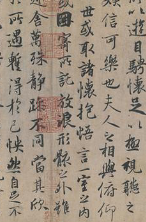 以遊目騁懷足以極視聽之
娛信可樂也夫人之相與俯仰
世或取諸懷抱悟言一室之內
或因寄所託放浪形骸之外雖
趣舍萬殊靜躁不同當其欣
於所遇暫得於己怏然自足不